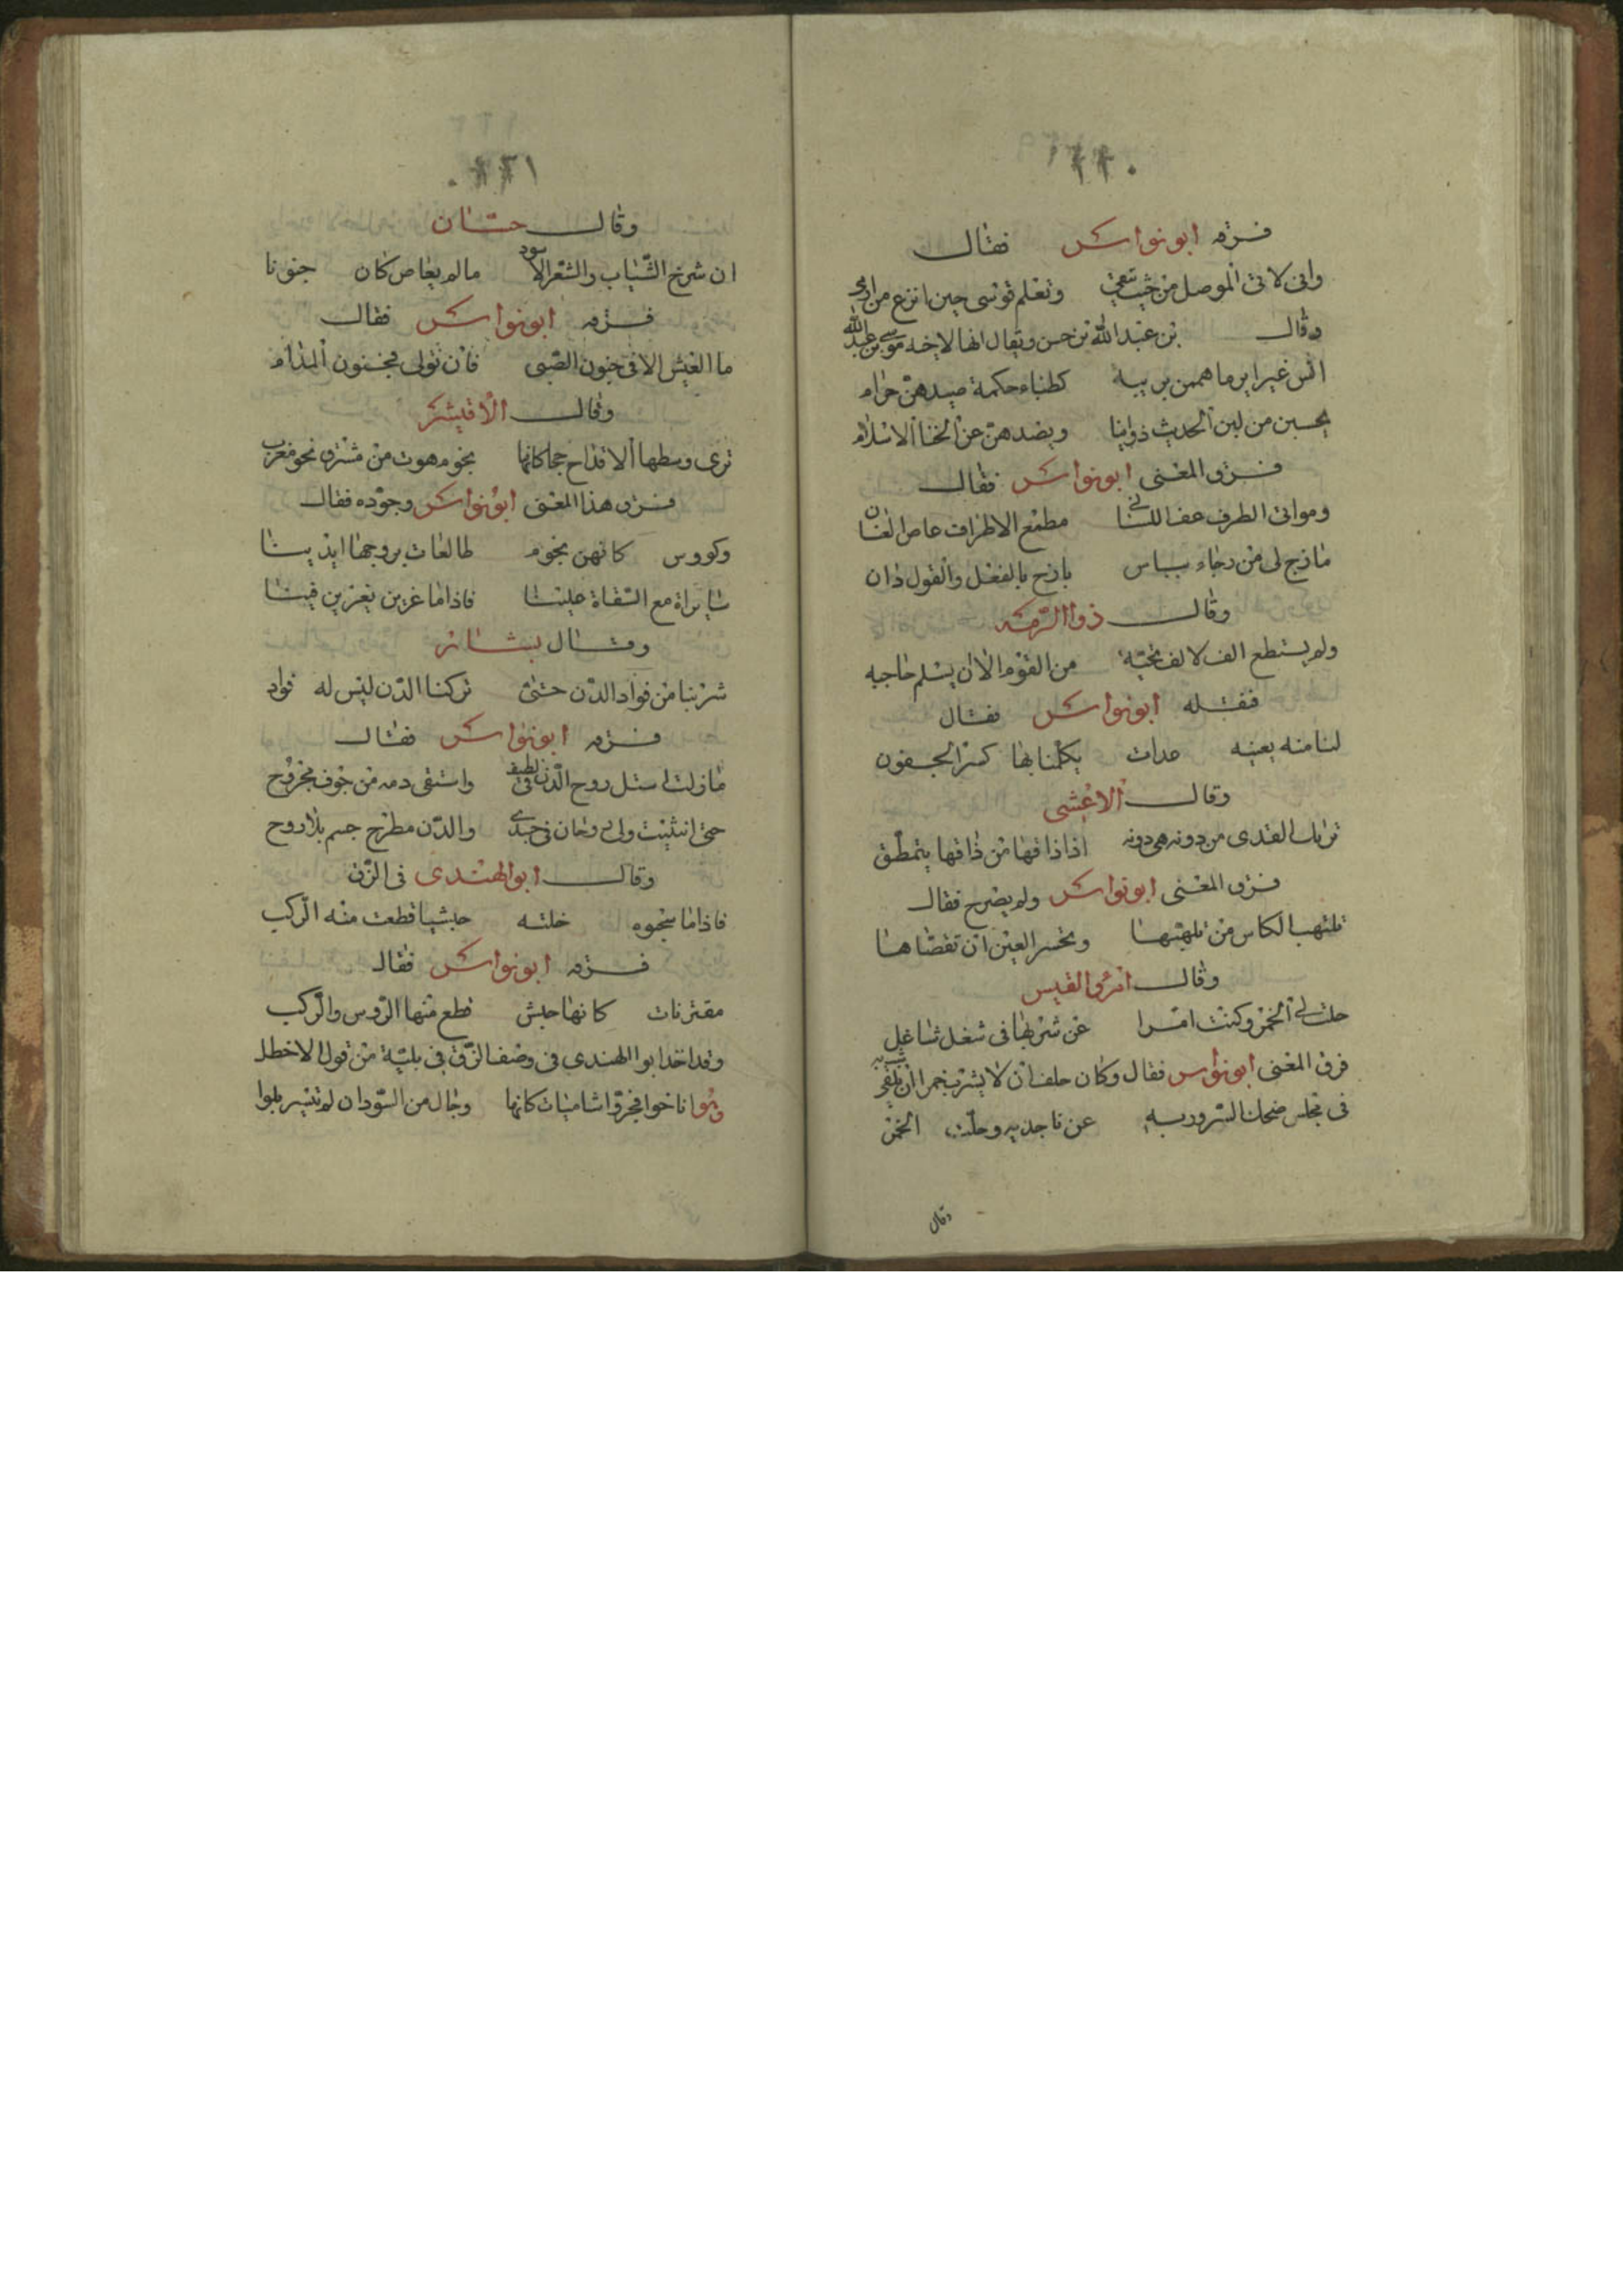 ١٢٠
فسرقه ابو نواس فقال
وانى لاتى الموصل من حيث يتقى وتعلم قوسى حين انزع من ارمى
وقال بن عبد الله بن حسن ويقال انها لاخيه موسى بن عبد الله
انس غراير ما هممن بريبة كظباء مكة صيدهن حرام
يحسبن من لين الحديث دوانيا ويصدهن عن الخنا الاسلام
فسرق المعنى ابو نواس فقال
ومواتى الطرف عف اللسان مطمع الاطراف عاص العنان
مازج لى من رجاء بياس نازح بالفعل والقول دان
وقال ذوا الرمه
ولم يستطع الف لالف تحية من القوم الا ان يسلم حاجبه
فنقله ابو نواس فقال
لنا منه بعينه عدات يكلمنا بها كسر الجفون
وقال الاعشى
تريك القذى من دونه هى دونه اذا ذاقها من ذاقها يتمطق
فسرق المعنى ابو نواس ولم يصرح فقال
تلتهب الكاس من تلهبها وتحسر العين ان تقصاها
وقال امرؤ القيس
حلت لى الخمر وكنت امرا عن شربها فى شغل شاغل
فرق المعنى ابو نواس فقال وكان حلف ان لا يشرب خمرا ان يلقى
فى مجلس ضحك السرور به عن ناجديه وحلت الخمر
وقال
١٢١
وقال حسان
ان شرخ الشباب والشعر الاسود ما لم يعاص كان جنونا
فسرقه ابو نواس فقال
ما العيش الا فى جنون الصبى فان تولى فجنون المدام
وقال الاقيشر
ترى وسطها الاقداح جما كانها نجوم هوت من مشرق نحو مغرب
فسرق هذا المعنى ابو نواس وجوده فقال
وكووس كانهن نجوم طالعات بروجها ايدينا
مع السقاة علينا فاذا ما غربن يغربن فينا
وقال بشار
شربنا من فواد الدن حتى تركنا الدن ليس له فواد
فسرقه ابو نواس فقال
ما زلت استل روح الدن فى لطف واستقى دمه من جوف مجروح
حتى انثنيت ولى روحان فى جسدى والدن مطرح جسم بلا روح
وقال ابو الهندى فى الزق
فاذا ما خلته حبشيا قطعت منه الركب
فسرقه ابو نواس فقال
مقترنات كانها حبش قطع منها الروس والركب
وقد اخذ ابو الهندى فى وصف الزق فى بليته من قول الاخطل
اناخوا فجروا شاصيات كانها رجال من السودان لم تتسربلوا